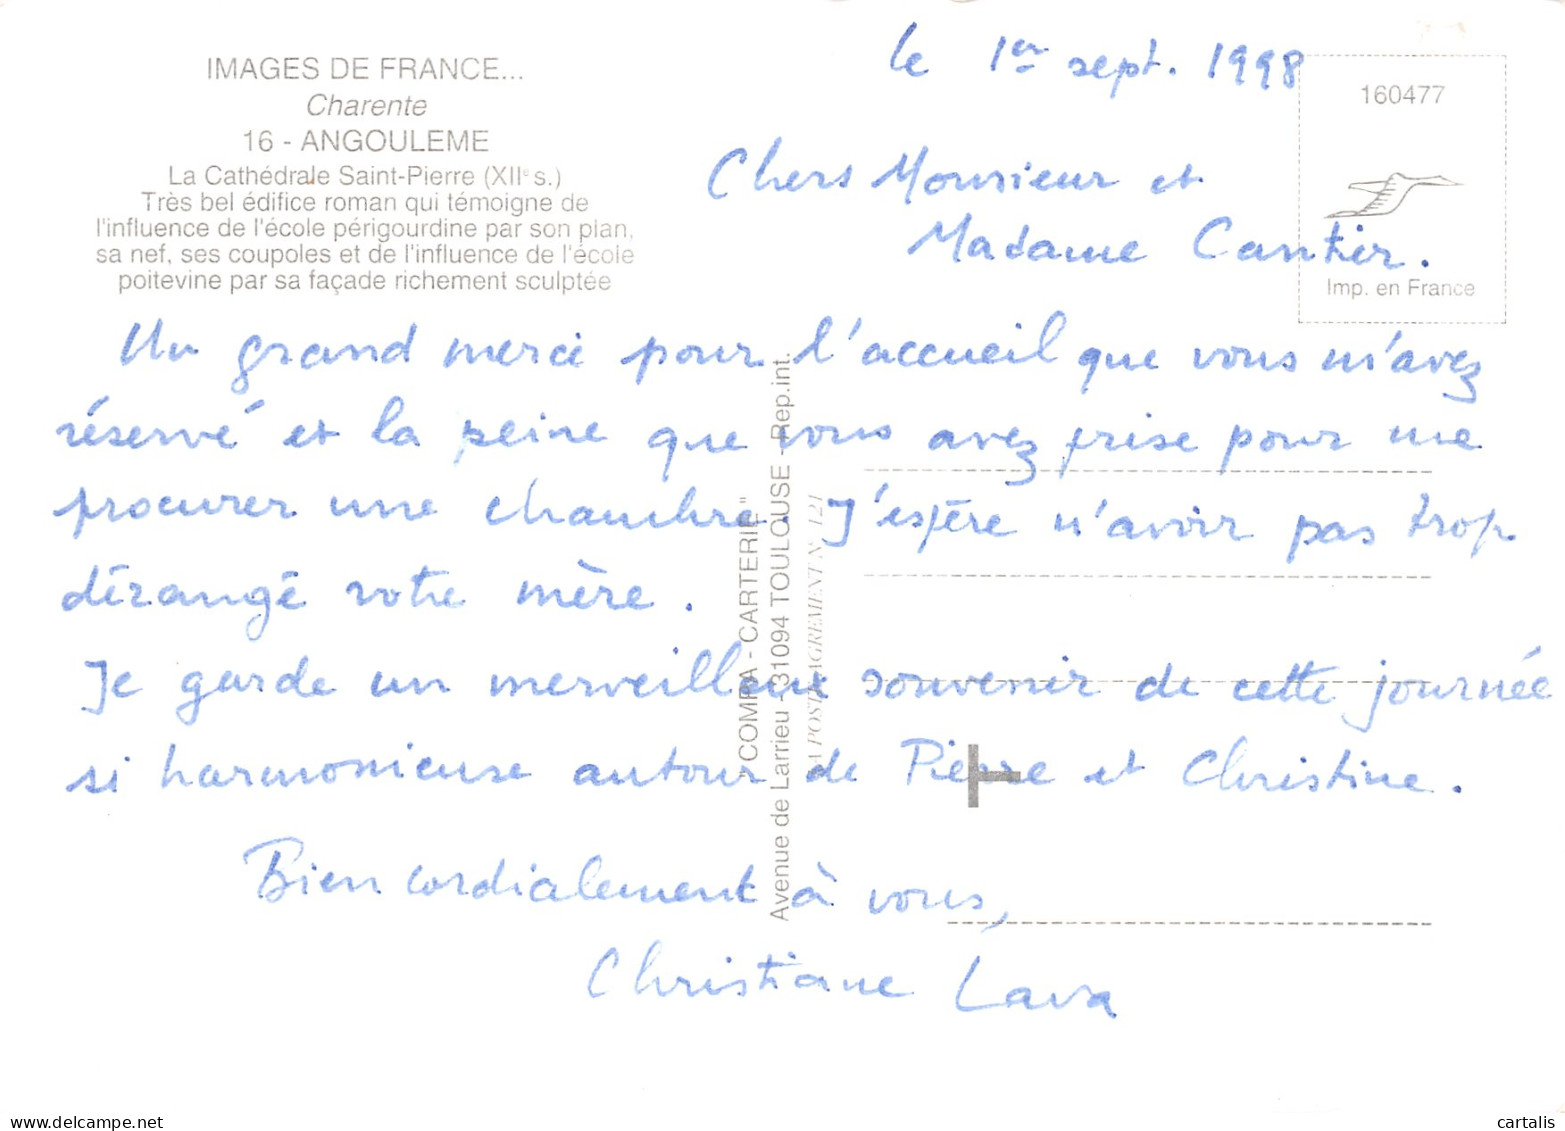 IMAGES DE FRANCE...
Charente
16 - ANGOULEME
La Cathédrale Saint-Pierre (XIIe s.)
Très bel édifice roman qui témoigne de
l'influence de l'école périgourdine par son plan,
sa nef, ses coupoles et de l'influence de l'école
poitevine par sa façade richement sculptée
le 1er sept. 1998
160477
Imp. en France
Chers Monsieur et
Madame Cantier.
Un grand merci pour l'accueil que vous m'avez
réservé et la peine que vous avez prise pour me
procurer une chambre. J'espère n'avoir pas trop
dérangé votre mère.
Je garde un merveilleux souvenir de cette journée
si harmonieuse autour de Pierre et Christine.
Bien cordialement à vous,
Christiane Lava
"COMPA - CARTERIE"
Avenue de Larrieu - 31094 TOULOUSE - Rep.int.
LA POSTE AGREMENT N° 121
cartalis
www.delcampe.net